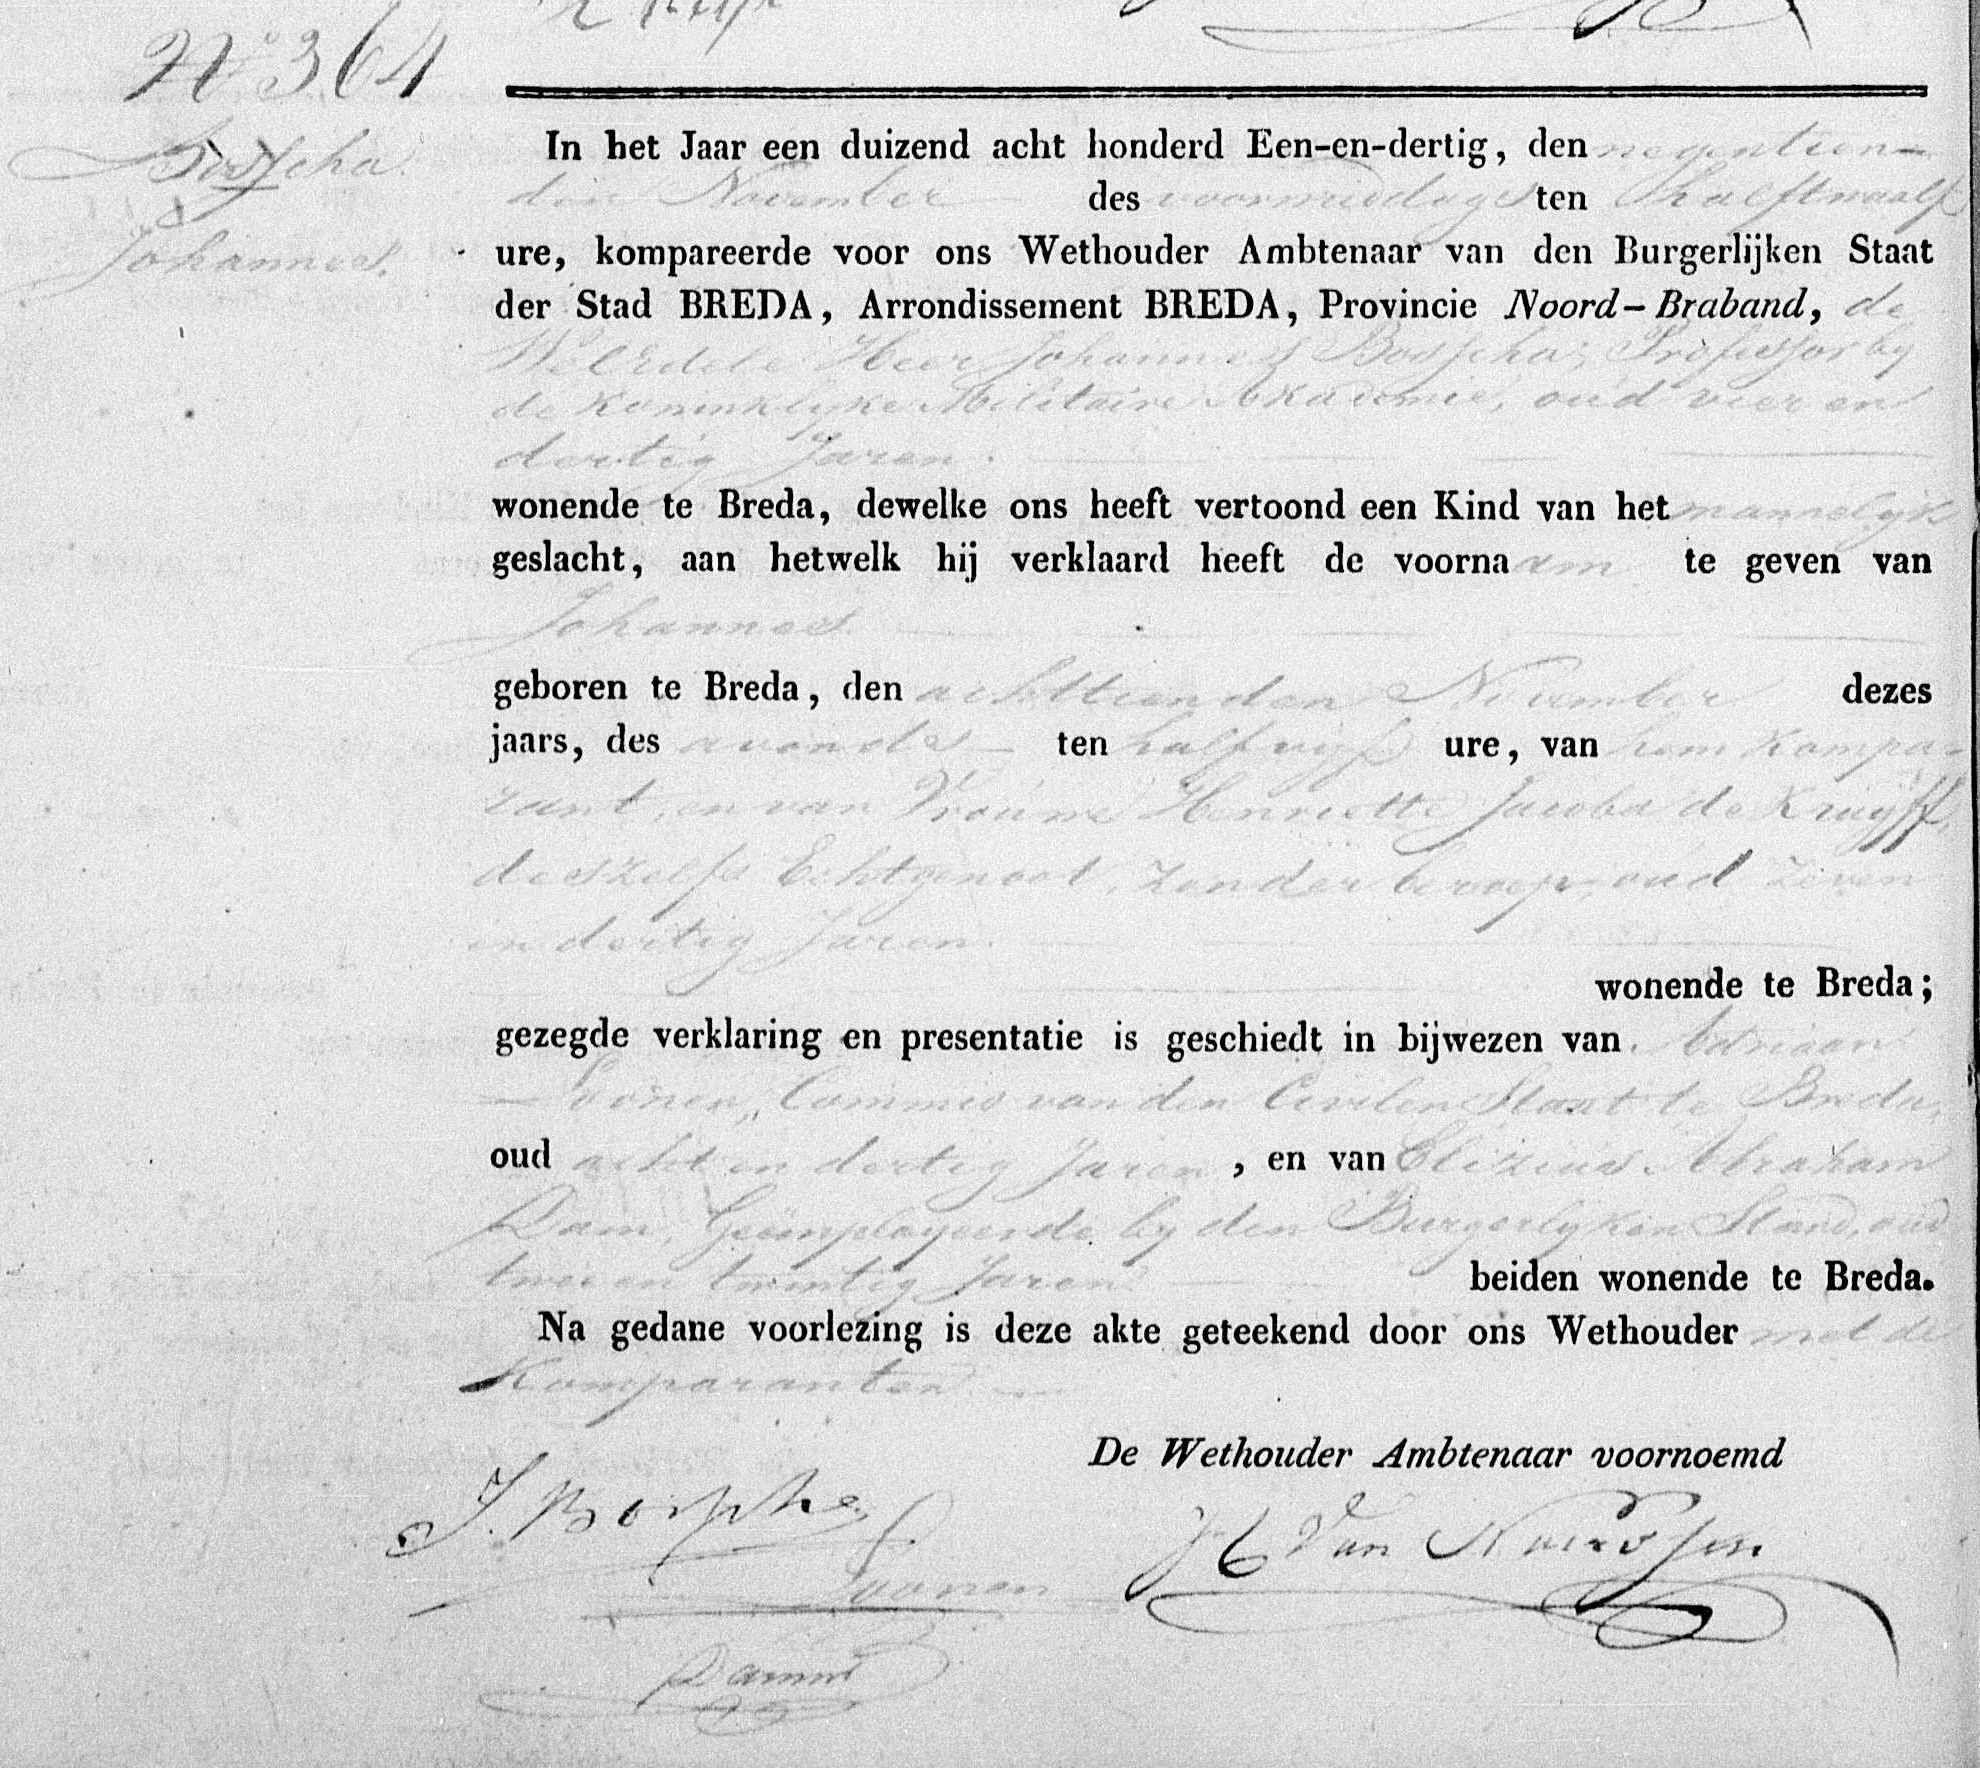 N° 364
Bosscha
Johannes.
In het Jaar een duizend acht honderd Een-en-dertig, den negentien-
den November des voormiddags ten half twaalf
ure, kompareerde voor ons Wethouder Ambtenaar van den Burgerlijken Staat
der Stad BREDA, Arrondissement BREDA, Provincie Noord-Braband, de
WelEdele Heer Johannes Bosscha, Professor by
de Koninklyke Militaire Akademie, oud vier en
dertig Jaren.
wonende te Breda, dewelke ons heeft vertoond een Kind van het mannelyk
geslacht, aan hetwelk hij verklaard heeft de voornaam te geven van
Johannes
geboren te Breda, den achttienden November dezes
jaars, des avonds ten half vyf ure, van hem kompa-
rant, en van Vrouwe Henriette Jacoba de Kruyff,
deszelfs Echtgenoot, zonder beroep, oud zeven
en dertig Jaren.
wonende te Breda;
gezegde verklaring en presentatie is geschiedt in bijwezen van Adriaan
Commis van den Civielen Staat te Breda,
oud acht en dertig Jaren, en van Abraham
Dam, Geëmployeerde by den Burgerlyken Stand, oud
twee en twintig Jaren beiden wonende te Breda.
Na gedane voorlezing is deze akte geteekend door ons Wethouder met de
Komparanten.
De Wethouder Ambtenaar voornoemd
J. Bosscha